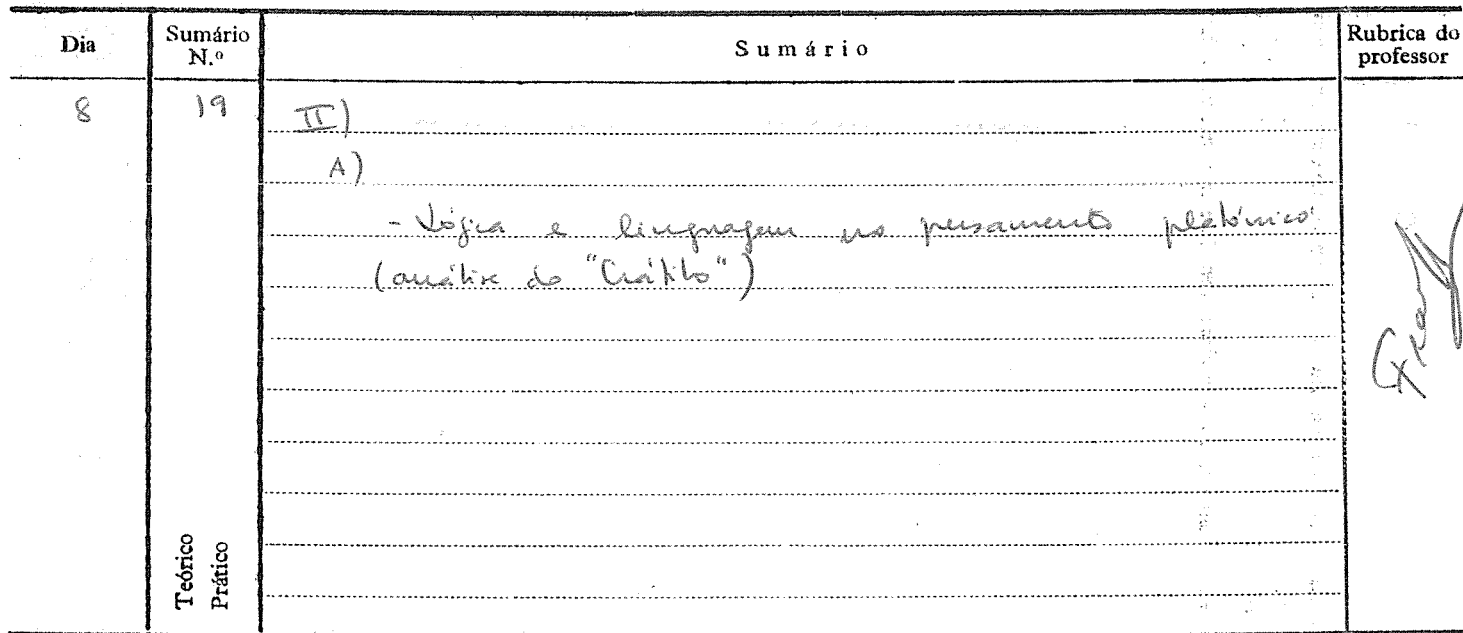 Dia
Sumário N.º
Sumário
Rubrica do professor
8
19
II)
A)
- Lógica e linguagem no pensamento platónico
(análise do "Crátilo")
Teórico
Prático